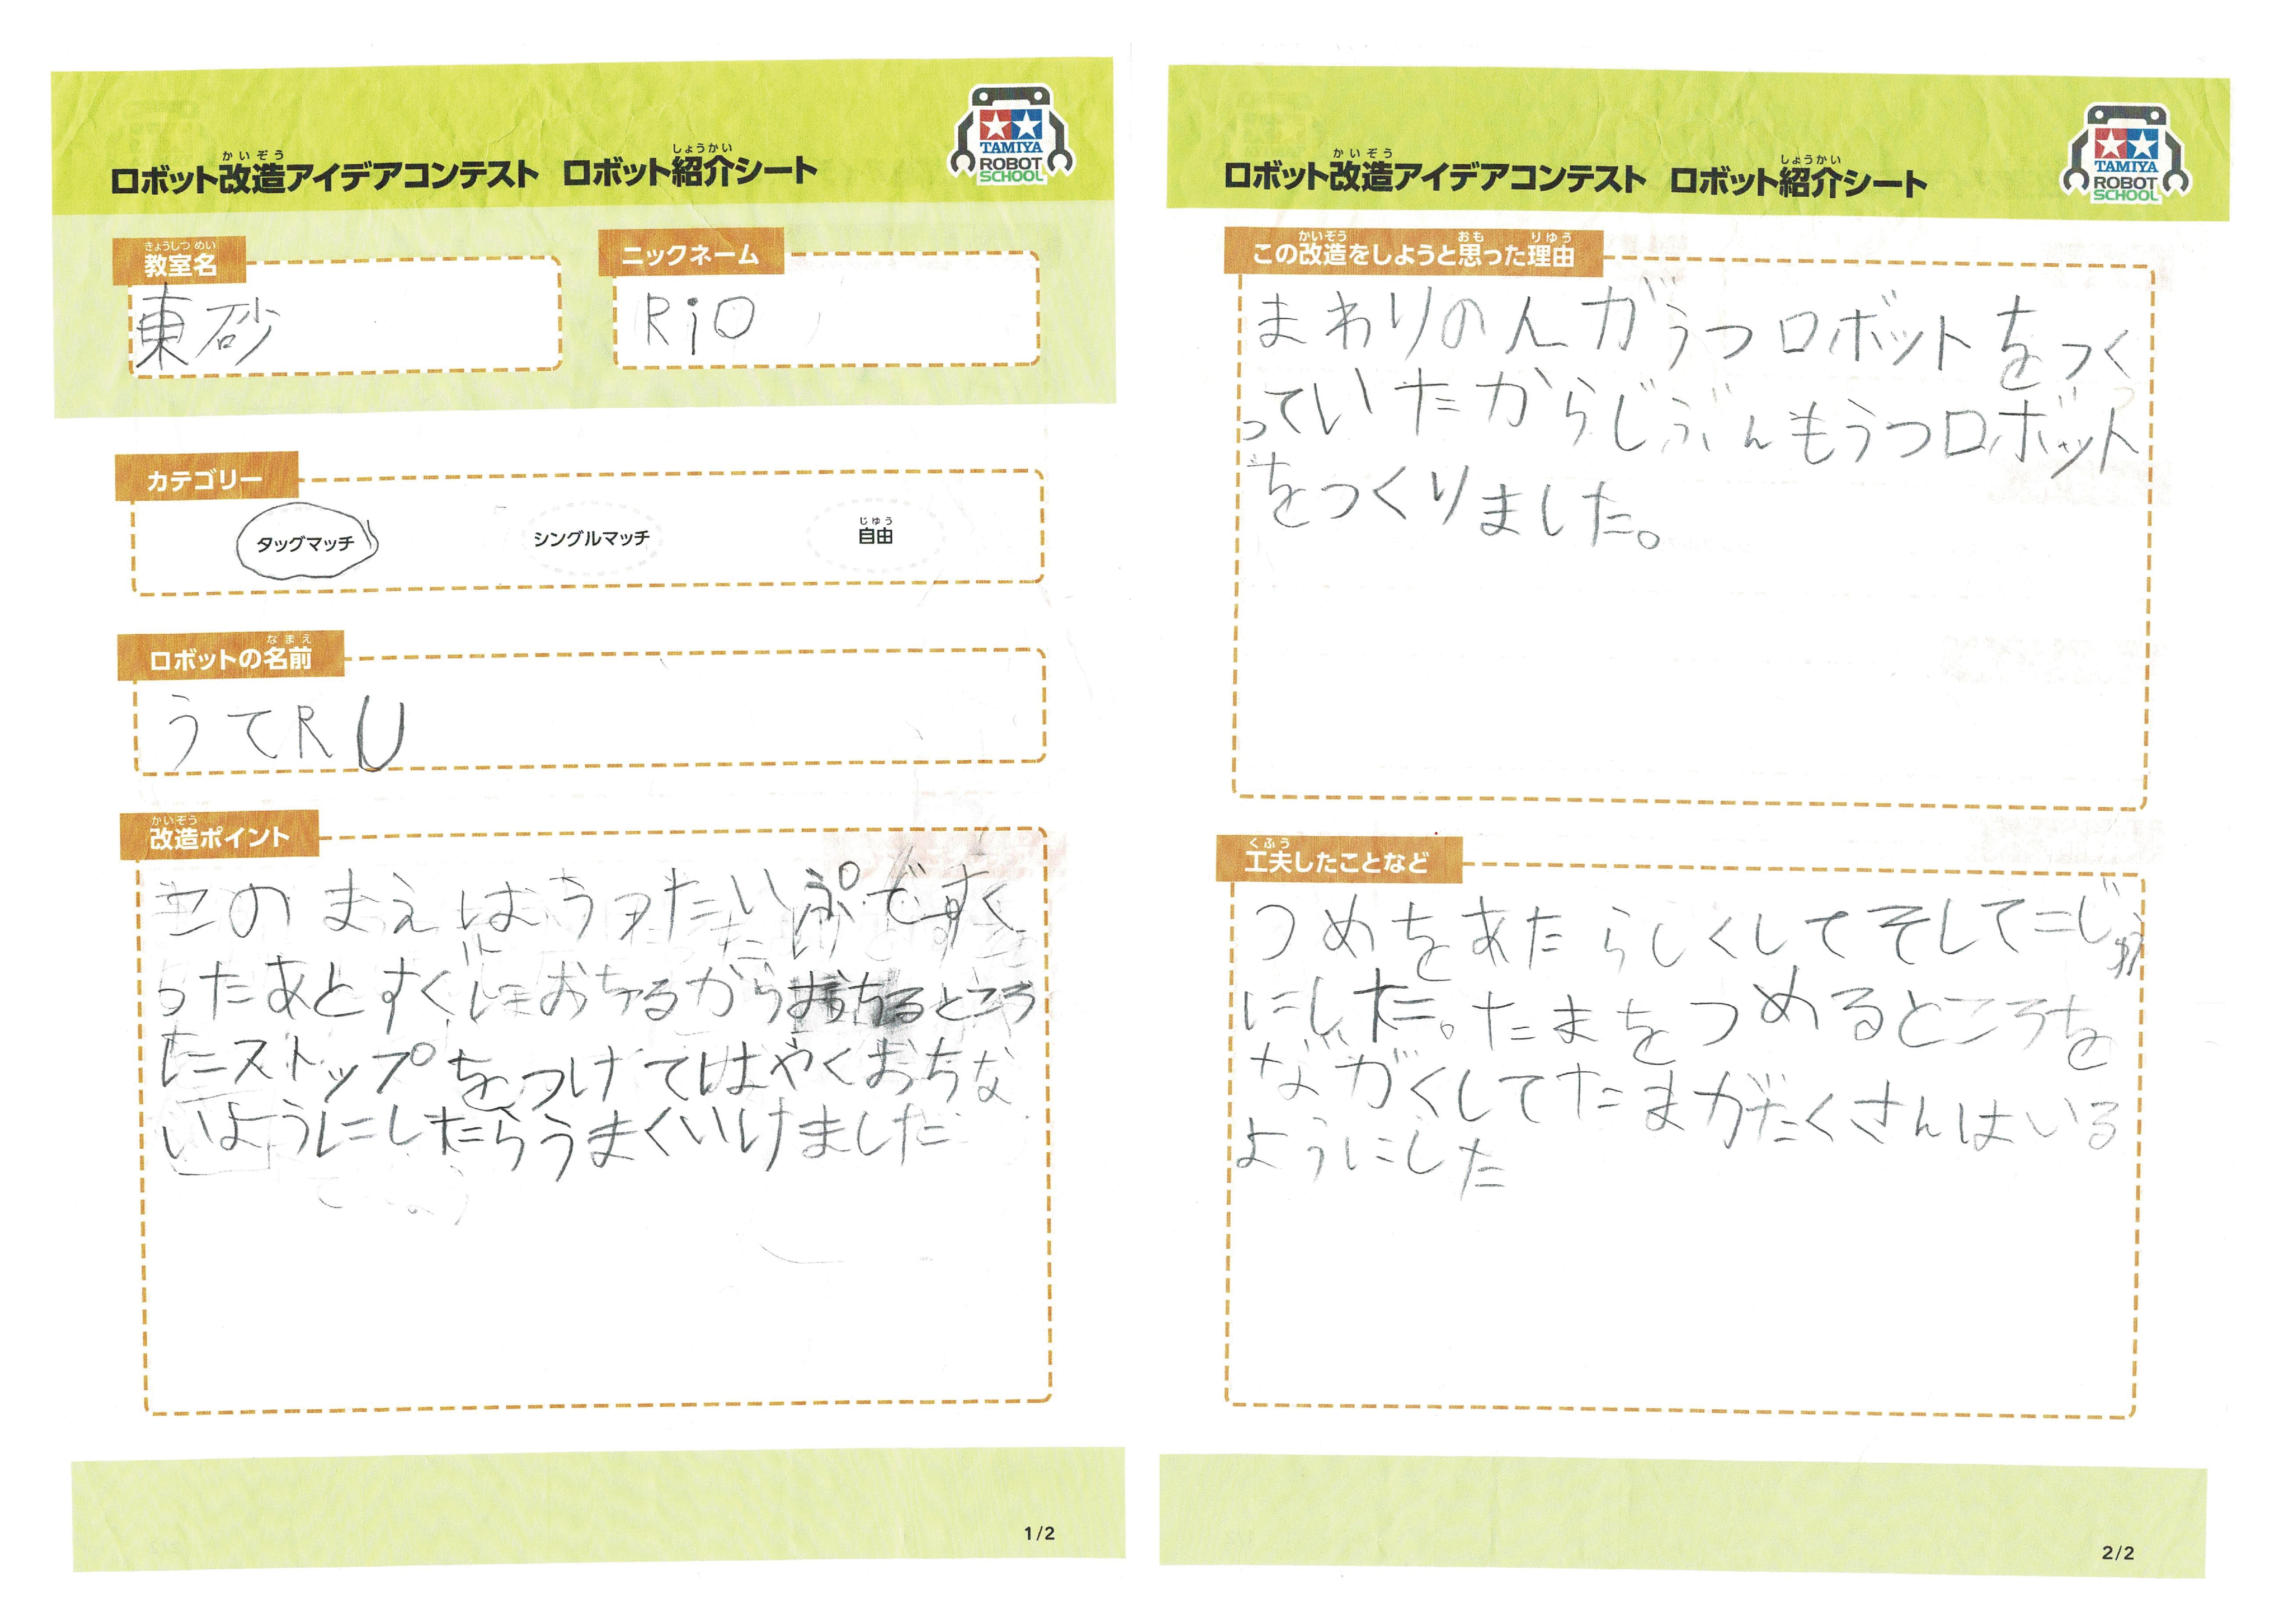 ロボット改造アイデアコンテスト ロボット紹介シート
かいぞう
しょうかい
TAMIYA
ROBOT
SCHOOL
きょうしつ めい
教室名
東砂
ニックネーム
RiO
カテゴリー
タッグマッチ
シングルマッチ
じゆう
自由
なまえ
ロボットの名前
うてRU
かいぞう
改造ポイント
このまえはうつたいぷですく
ったあとすぐにおちるからおちるところ
にストップをつけてはやくおちな
いようにしたらうまくいけました
1/2
かいぞう
しょうかい
ロボット改造アイデアコンテスト ロボット紹介シート
TAMIYA
ROBOT
SCHOOL
かいぞう おも りゆう
この改造をしようと思った理由
まわりの人がうつロボットをつく
っていたからじぶんもうつロボット
をつくりました。
くふう
工夫したことなど
つめをあたらしくしてそしてにじゅう
にした。たまをつめるところを
ながくしてたまがたくさんはいる
ようにした
2/2